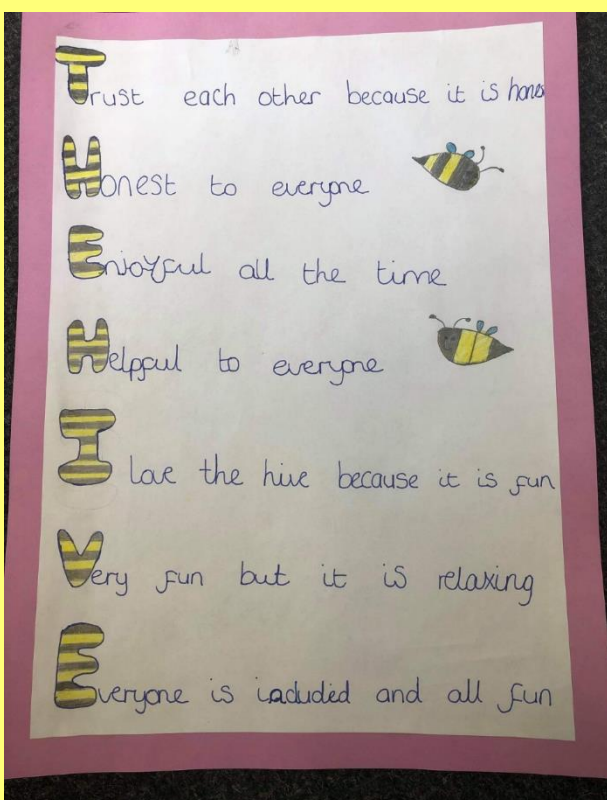 Trust each other because it is hones
Honest to everyone
Enjoyful all the time
Helpful to everyone
I love the hive because it is fun
Very fun but it is relaxing
Everyone is included and all fun